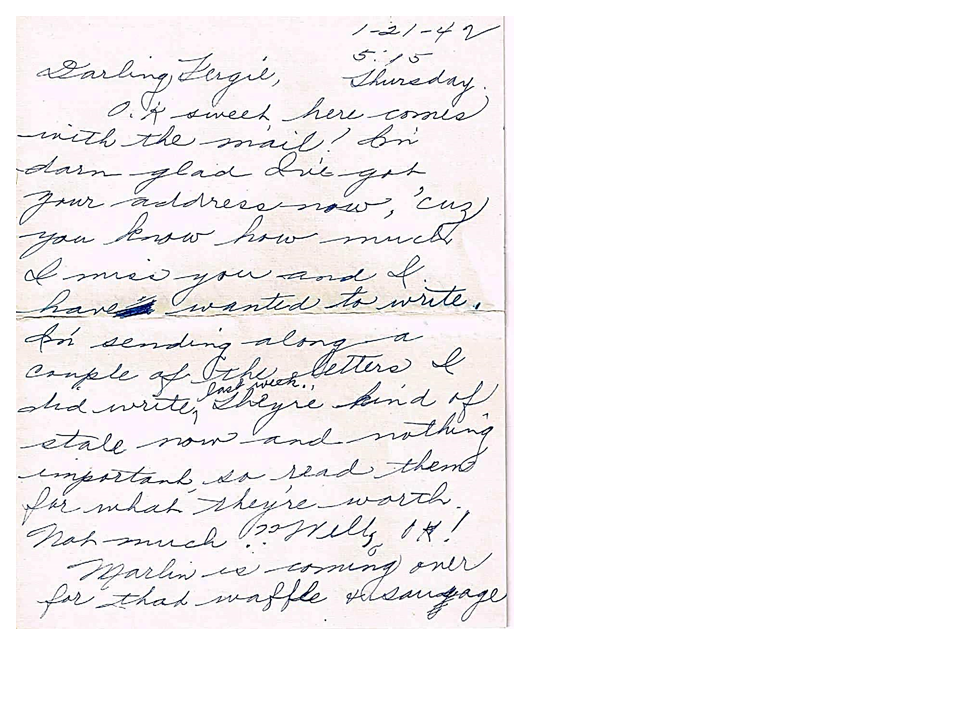 1-21-42
5:15
Thursday.
Darling Fergie,
O.K sweet here comes
with the mail! I'm
darn glad I've got
your address now, 'cuz
you know how much
I miss you and I
have wanted to write.
I'm sending along a
couple of the letters I
did write, last week. They're kind of
stale now and nothing
important, so read them
for what they're worth.
Not much ?? Well, OK!
Marlin is coming over
for that waffle & sausage